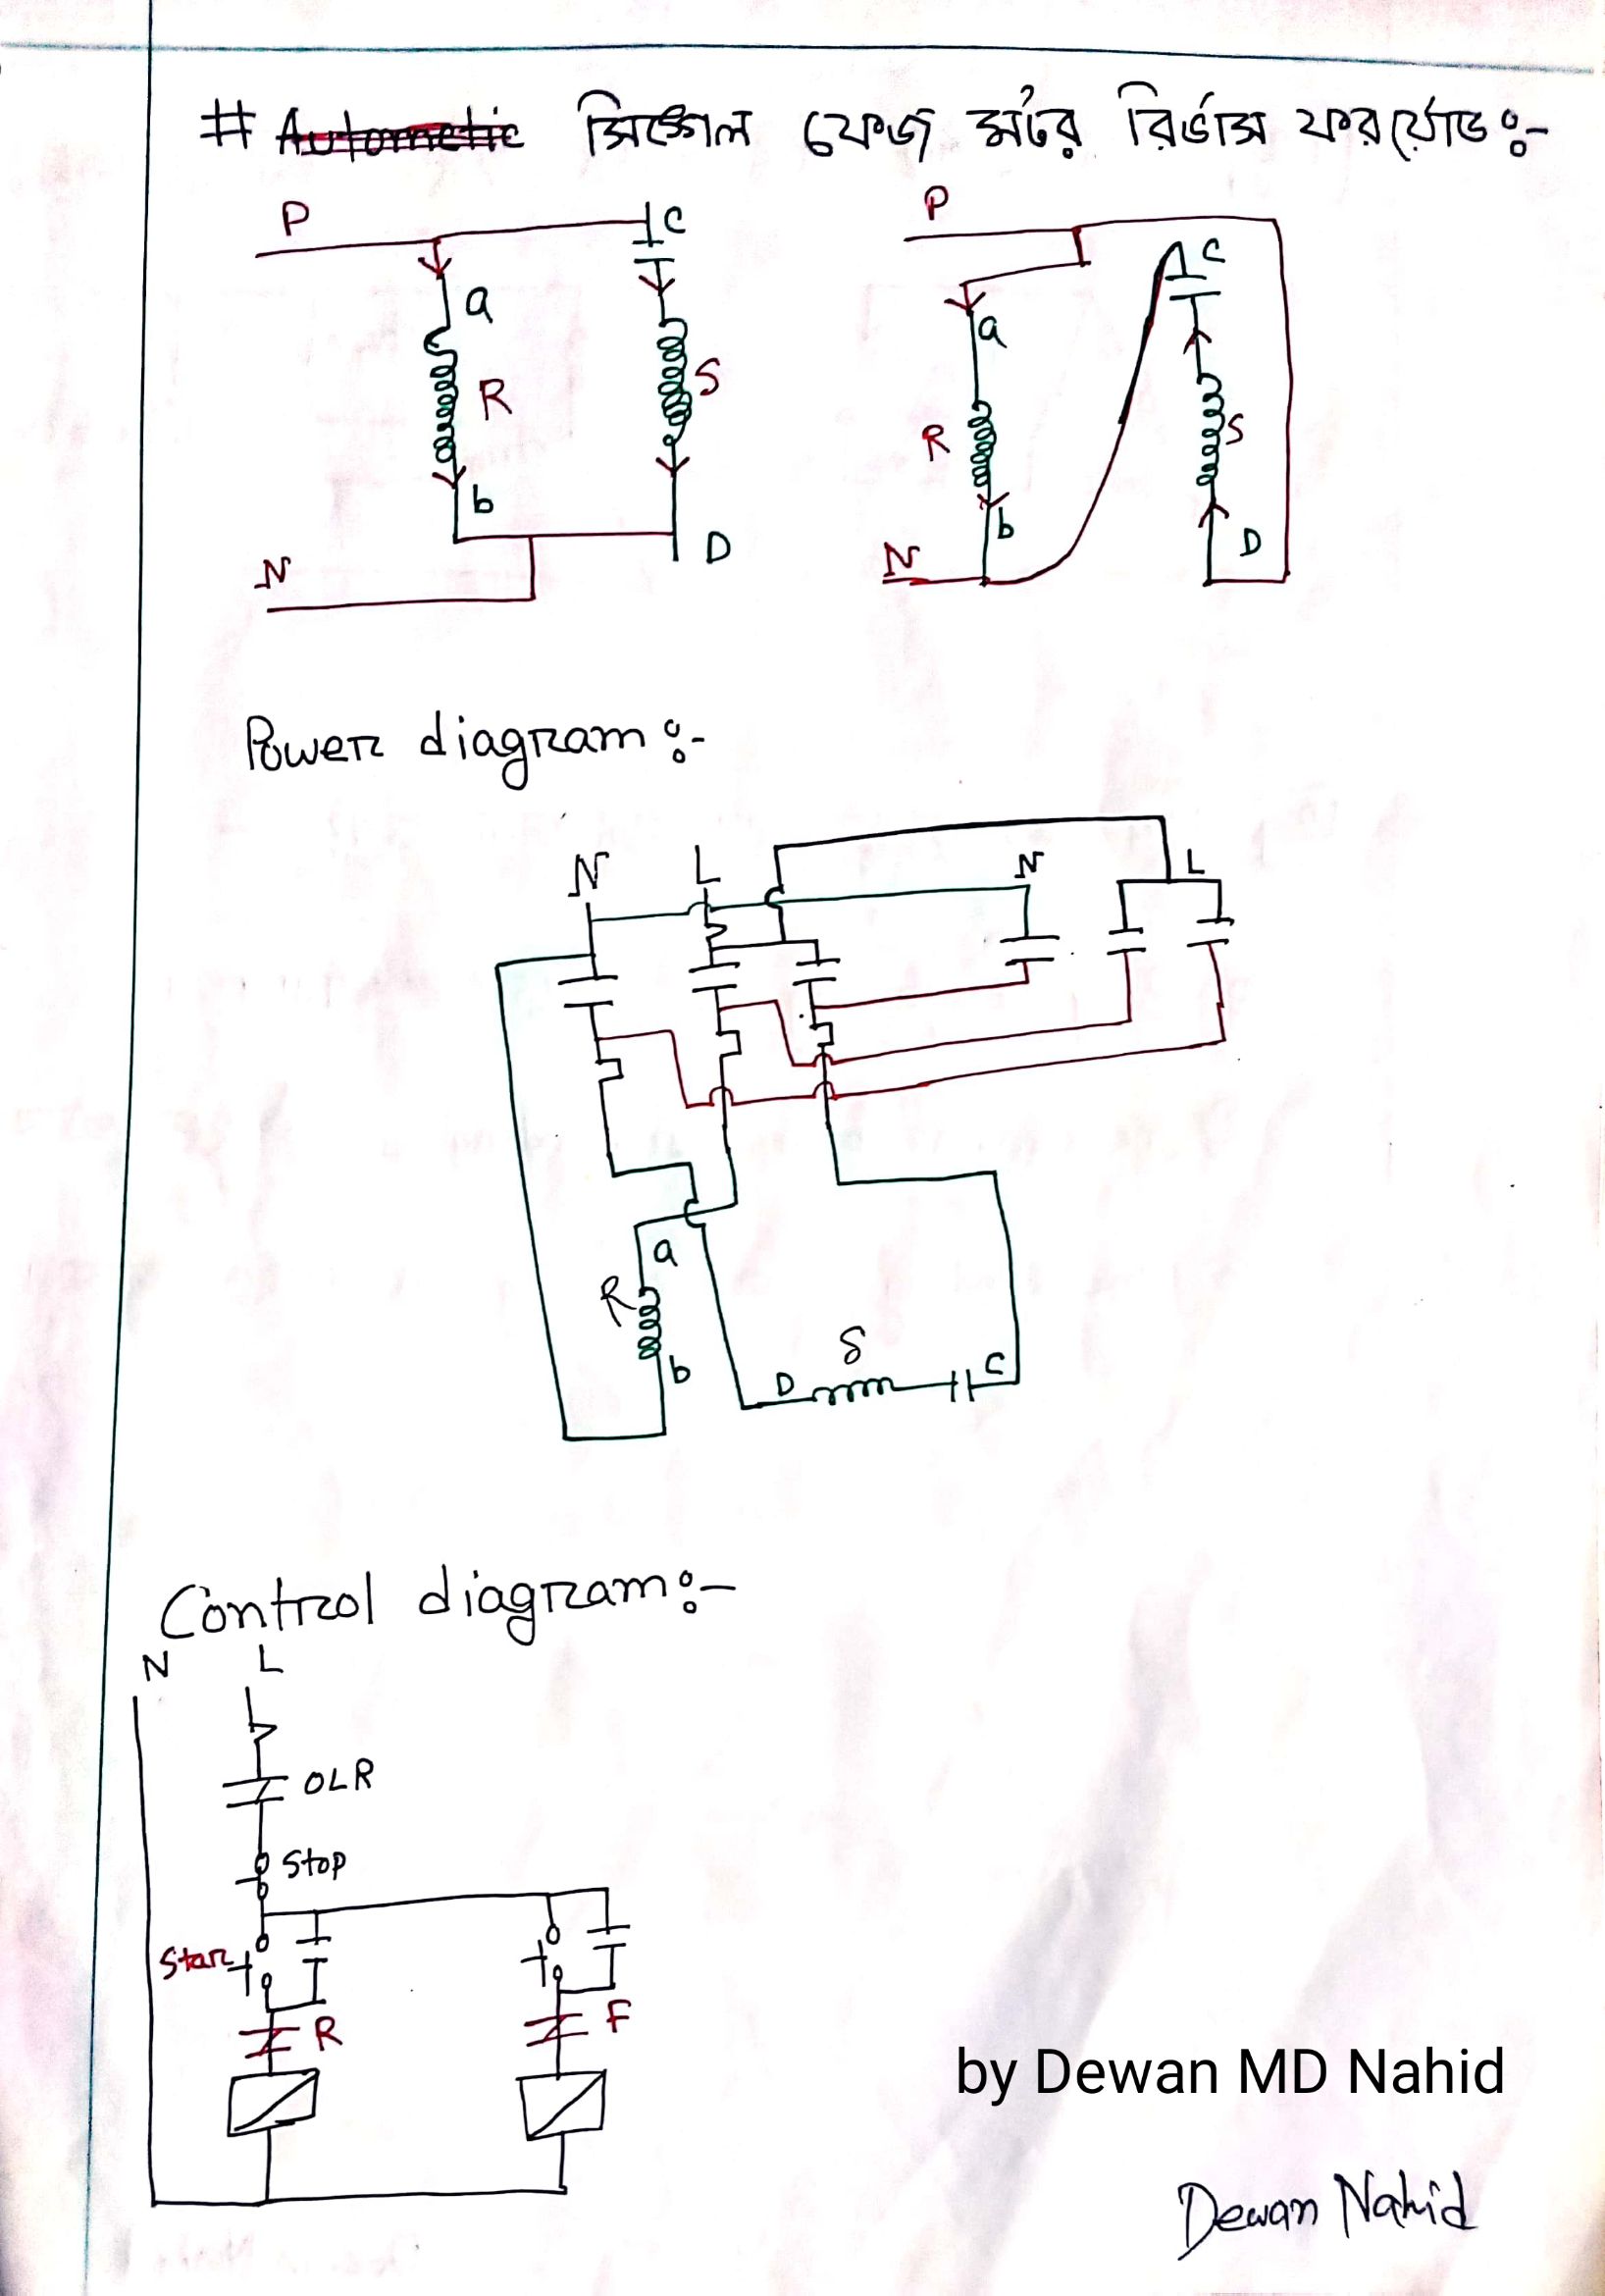 # Autometic সিঙ্গেল ফেজ মটর রিভার্স ফরর্য়োড :-
P C P C
a a
R S R S
b b
N D N D
Power diagram :-
N L N L
a
R
b
D S C
Control diagram :-
N L
OLR
Stop
Start
R F
by Dewan MD Nahid
Dewan Nahid